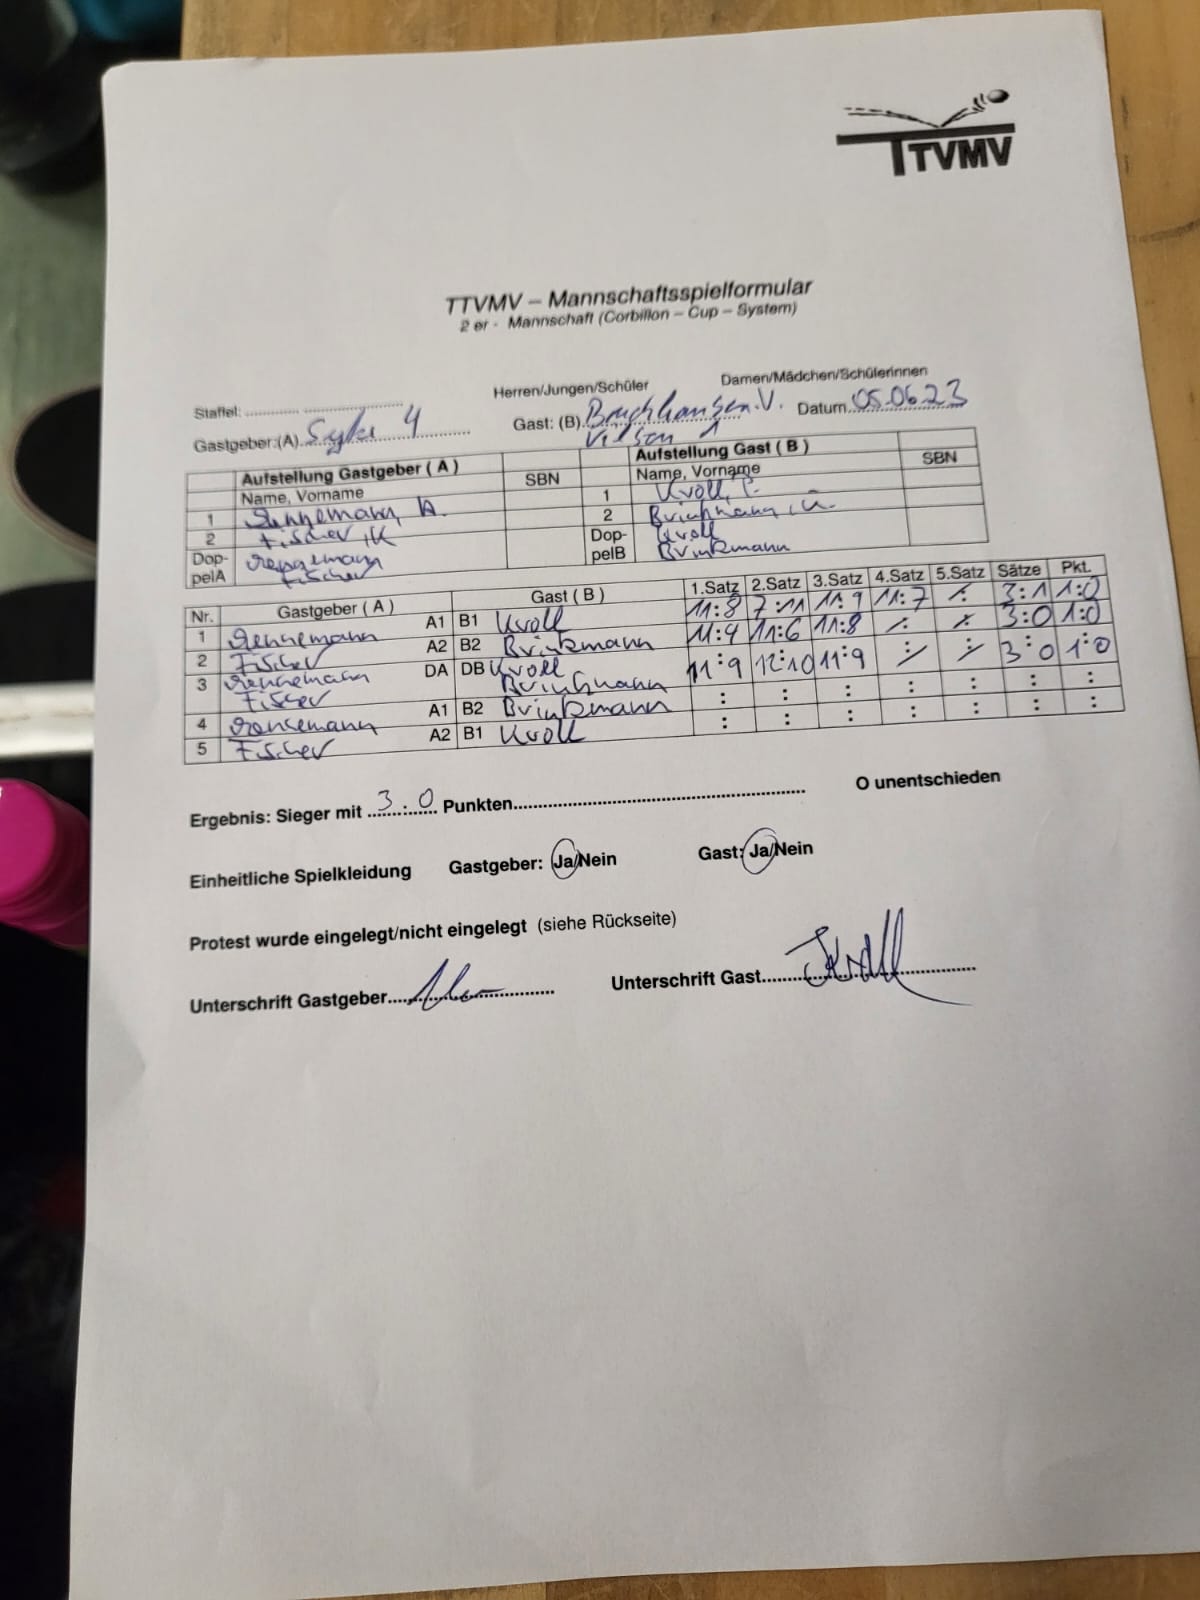 TTVMV
TTVMV – Mannschaftsspielformular
2 er - Mannschaft (Corbillon – Cup – System)
Herren/Jungen/Schüler Damen/Mädchen/Schülerinnen
Staffel:
Gastgeber:(A) Syke 4 Gast: (B) Bruchhausen.V. Datum 05.06.23
Vilsen 1
Aufstellung Gastgeber ( A ) SBN Aufstellung Gast ( B ) SBN
Name, Vorname Name, Vorname
1 A. 1 Kroll,
2 Fischer, K 2 Brinkmann, 
Dop-pelA Dop-pelB Kroll
Fischer Brinkmann
Nr. Gastgeber ( A ) Gast ( B ) 1.Satz 2.Satz 3.Satz 4.Satz 5.Satz Sätze Pkt.
1 Rennemann A1 B1 Kroll 11:8 7:11 11:9 11:7 : 3:1 1:0
2 Fischer A2 B2 Brinkmann 11:4 11:6 11:8 : : 3:0 1:0
3 Rennemann DA DB Kroll 11:9 12:10 11:9 : : 3:0 1:0
Fischer Brinkmann : : : : : : :
4 Rennemann A1 B2 Brinkmann : : : : : : :
5 Fischer A2 B1 Kroll
Ergebnis: Sieger mit 3:0 Punkten O unentschieden
Einheitliche Spielkleidung Gastgeber: Ja/Nein Gast: Ja/Nein
Protest wurde eingelegt/nicht eingelegt (siehe Rückseite)
Unterschrift Gastgeber Unterschrift Gast Kroll